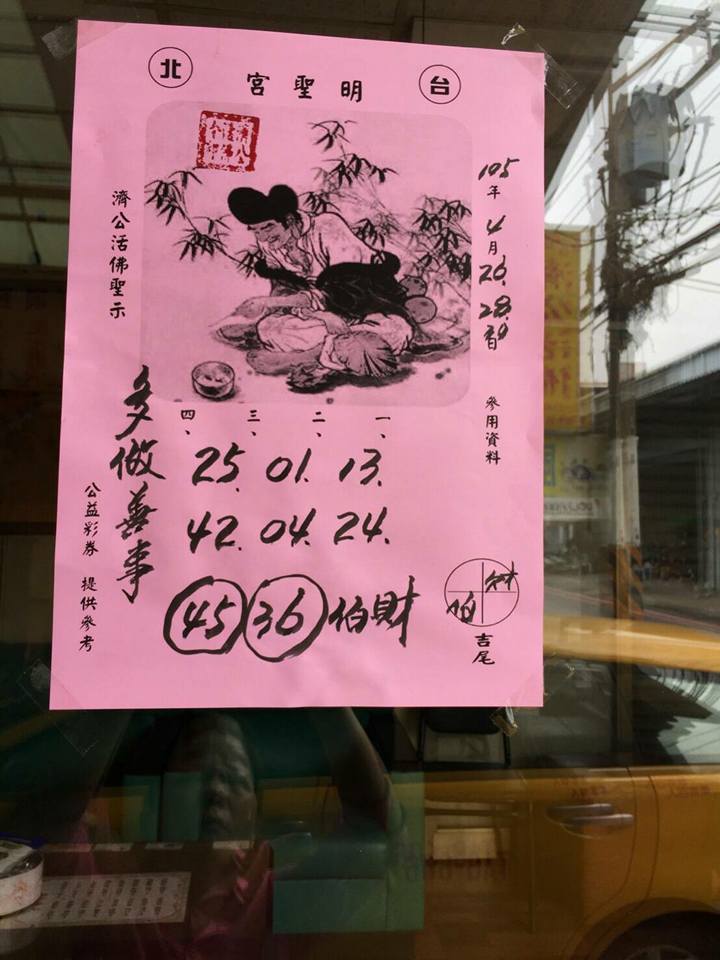 台北
明聖宮
105年4月26.28.30日
參用資料
濟公活佛聖示
一、二、三、四、
25. 01. 13.
42. 04. 24.
45 36 伯財
多做善事
公益彩券 提供參考
財
伯
吉尾